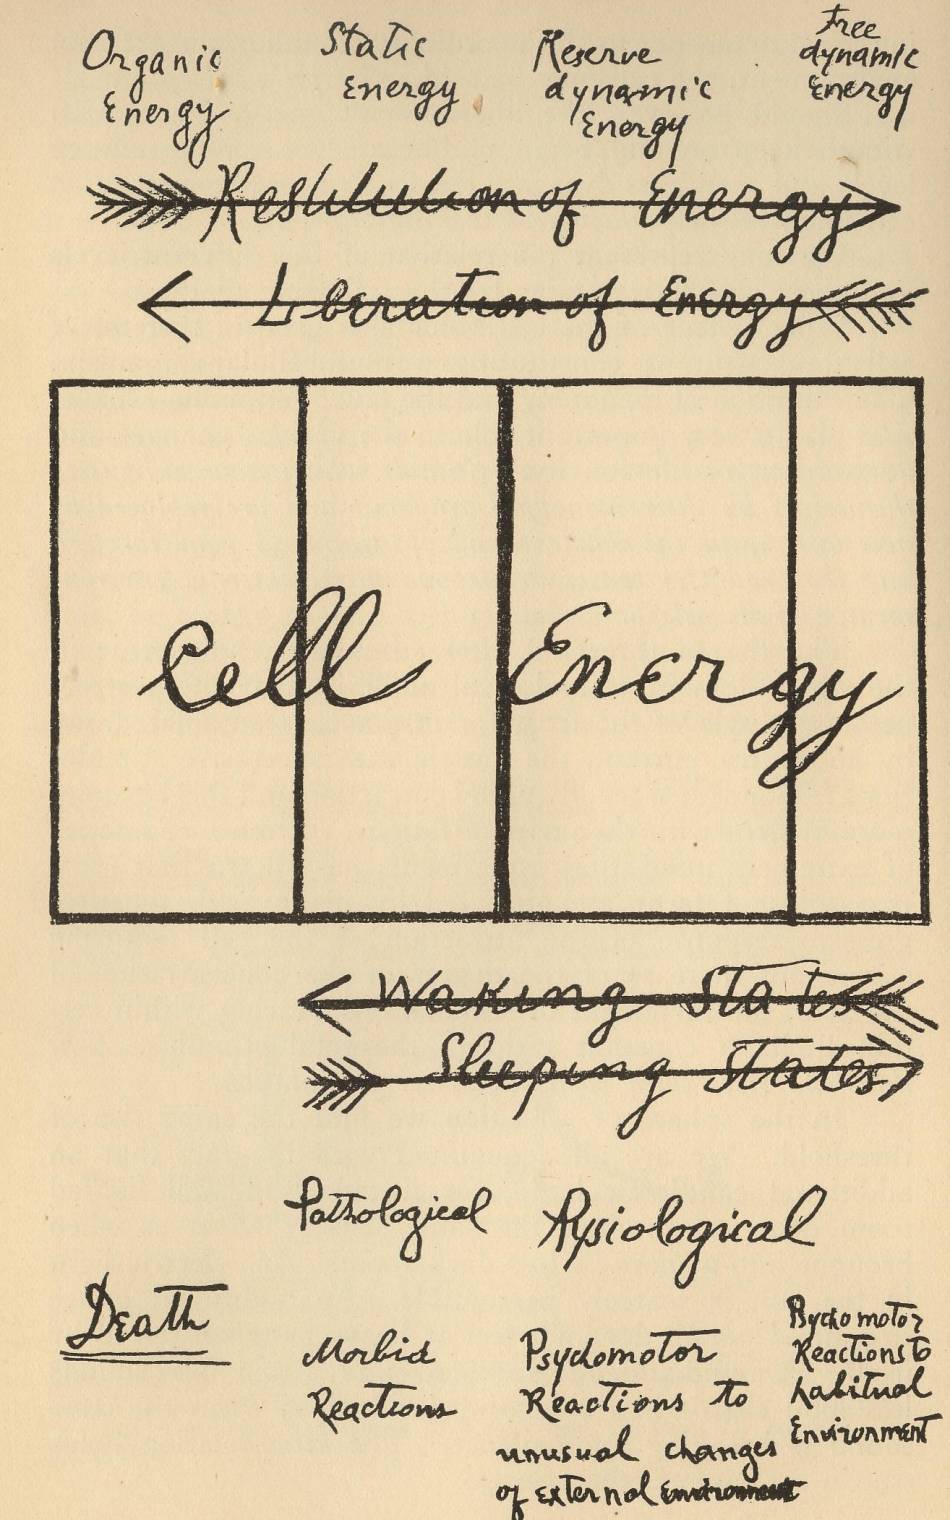 Organic
Energy
Static
Energy
Reserve
dynamic
Energy
Free
dynamic
Energy
Restitution of Energy
Liberation of Energy
Cell Energy
Waking States
Sleeping States
Pathological
Pysiological
Death
Morbid
Reactions
Psychomotor
Reactions to
unusual changes
of external Environment
Psychomotor
Reactions to
habitual
Environment